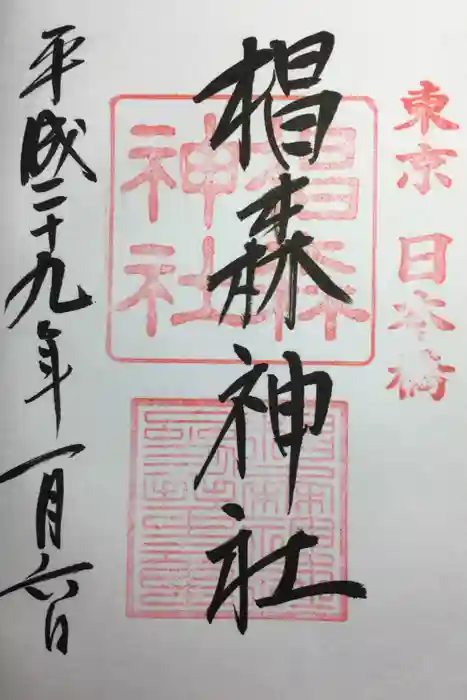 東京 日本橋
椙森神社
椙森
神社
平成二十九年一月六日